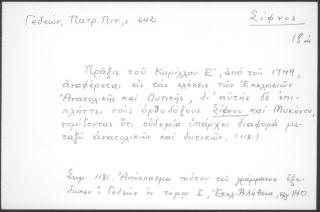 Γεδεών, Πατρ. Πιν., σ 642
Σίφνος
18
Πρᾶξις τοῦ Κυρίλλου Ε΄, ἀπό τοῦ 1749,
ἀναφέρεται εἰς τάς σχέσεις τῶν Ἐκκλησιῶν
Ἀνατολικῆς καί Δυτικῆς, δι' αὐτῆς δέ ἐπι-
πλήττει τούς ὀρθοδόξους Σίφνου καί Μυκόνου,
νομίζοντας ὅτι οὐδεμία ὑπάρχει διαφορά με-
ταξύ ἀνατολικῶν καί δυτικῶν. (1181)
Σημ. 1181. Ἀπόσπασμα τούτου τοῦ γράμματος ἐξέ-
δωκεν ὁ Γεδεών ἐν τόμῳ Ι, Ἐκκλ. Ἀλήθεια, σελ 140.